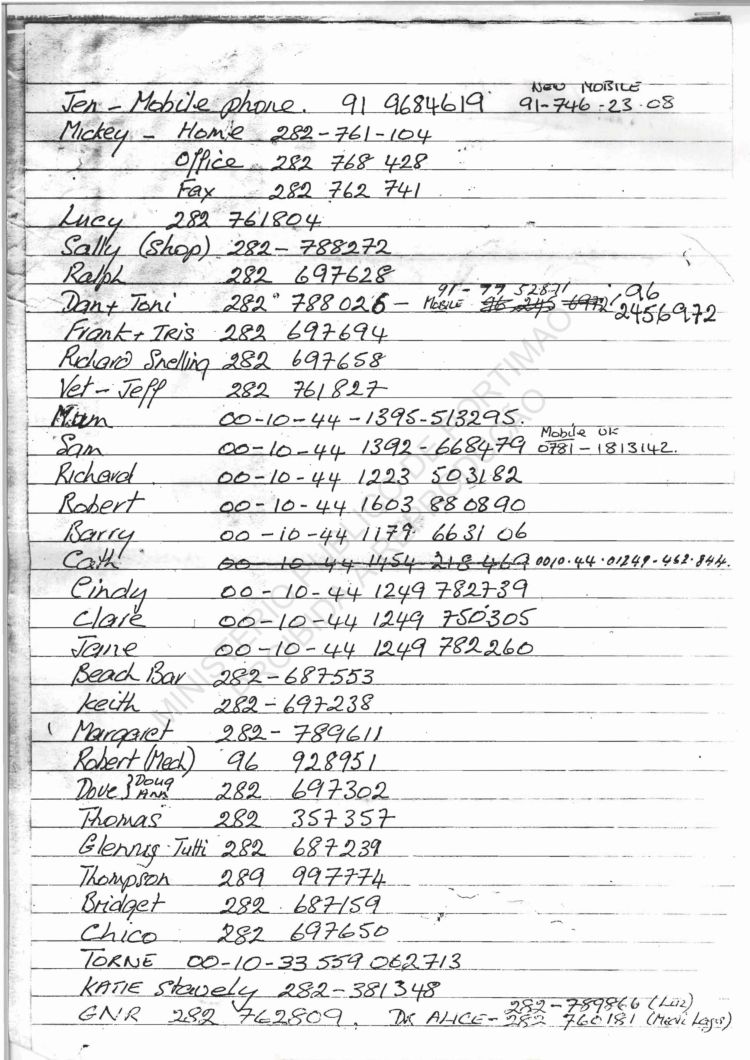 NEW MOBILE
Jen - Mobile phone. 91 9684619 91-746-23-08
Mickey - Home 282-761-104
Office 282 768 428
Fax 282 762 741
Lucy 282 761804
Sally (Shop) 282-788272
Ralph 282 697628
91-77 52871
Dan + Toni 282 788026 - MOBILE 96 245 6972, 96 2456972
Frank + Iris 282 697694
Richard Snelling 282 697658
Vet - Jeff 282 761827
Mum 00-10-44-1395-513295.
Mobile UK
Sam 00-10-44 1392-668479 0781-1813142.
Richard 00-10-44 1223 503182
Robert 00-10-44 1603 880890
Barry 00-10-44 1179 6631 06
Cath 00-10-44 1454 218 469 0010.44.01249-462.844.
Cindy 00-10-44 1249 782739
Clare 00-10-44 1249 750305
Jane 00-10-44 1249 782260
Beach Bar 282-687553
Keith 282-697238
Margaret 282-789611
Robert (Mech) 96 928951
Dove } DOUG ANN 282 697302
Thomas 282 357357
Glennys Tutti 282 687239
Thompson 289 997774
Bridget 282 687159
Chico 282 697650
TORNE 00-10-33 559 062713
KATIE Stavely 282-381348
282-789866 (Luz)
GNR 282 762809. DR ALICE - 282 760181 (Medi Lagos)
MINISTÉRIO PÚBLICO DE PORTIMÃO
PROIBIDA A REPRODUÇÃO